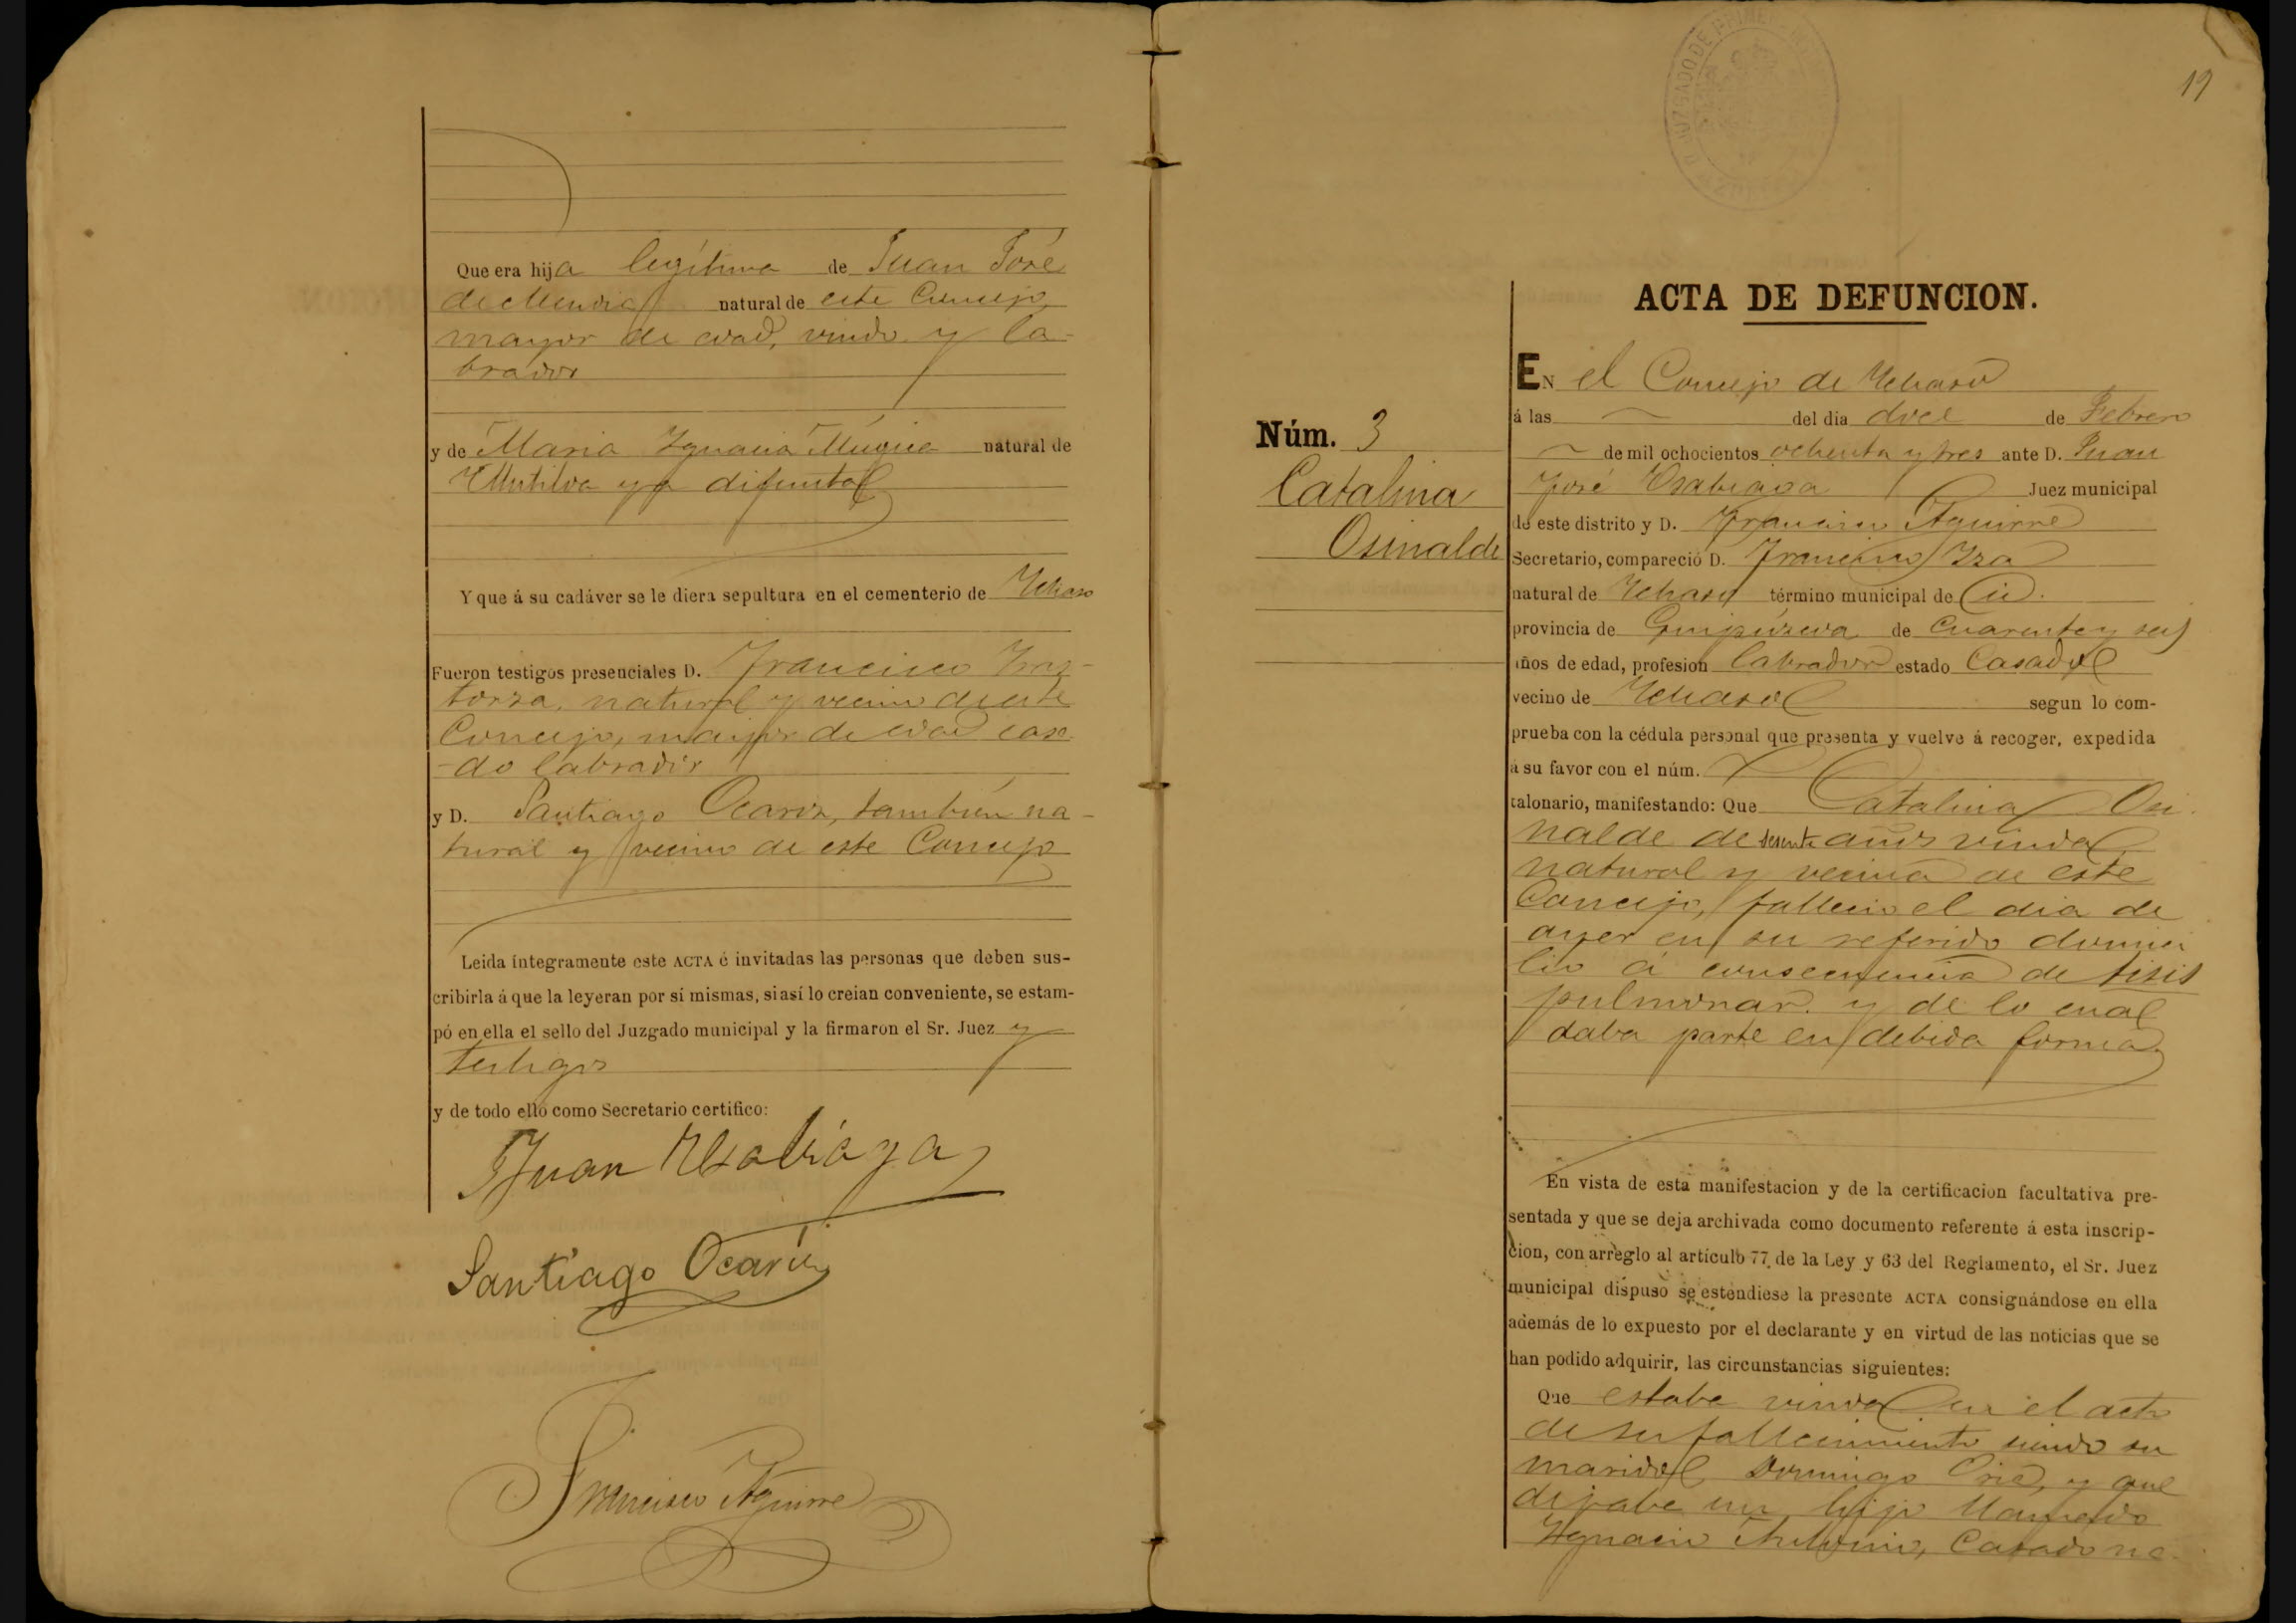 Que era hija legítima de Juan José
de Mendia natural de este Concejo
mayor de edad, viudo y la-
brador
y de Maria Ygnacia Mugica natural de
Mutiloa ya difunta
Y que á su cadáver se le diera sepultura en el cementerio de Ychaso
Fueron testigos presenciales D. Francisco
natural y vecino de este
Concejo, mayor de edad casa-
-do labrador
y D. Santiago Ocariz, también na-
tural y vecino de este Concejo
Leida íntegramente este ACTA é invitadas las personas que deben sus-
cribirla á que la leyeran por sí mismas, si así lo creian conveniente, se estam-
pó en ella el sello del Juzgado municipal y la firmaron el Sr. Juez y
testigos
y de todo ello como Secretario certifico:
Juan Usabiaga
Santiago Ocariz
Francisco Aguirre
19
ACTA DE DEFUNCION.
Núm. 3
Catalina
Osinalde
EN el Concejo de Ychaso
á las del dia doce de Febrero
de mil ochocientos ochenta y tres ante D. Juan
José Usabiaga Juez municipal
de este distrito y D. Francisco Aguirre
Secretario, compareció D. Francisco Yza
natural de Ychaso término municipal de id.
provincia de Guipúzcoa de cuarenta y seis
años de edad, profesion labrador estado Casado
vecino de Ychaso segun lo com-
prueba con la cédula personal que presenta y vuelve á recoger, expedida
á su favor con el núm.
talonario, manifestando: Que Catalina Osi-
nalde de sesenta años viuda
natural y vecina de este
Concejo, fallecio el dia de
ayer en su referido domici
lio á consecuencia de tisis
pulmonar. y de lo cual
daba parte en debida forma.
En vista de esta manifestacion y de la certificacion facultativa pre-
sentada y que se deja archivada como documento referente á esta inscrip-
cion, con arreglo al artículo 77 de la Ley y 63 del Reglamento, el Sr. Juez
municipal dispuso se estendiese la presente ACTA consignándose en ella
además de lo expuesto por el declarante y en virtud de las noticias que se
han podido adquirir, las circunstancias siguientes:
Que estaba viuda en el acto
de su fallecimiento siendo su
marido Domingo Oria, y que
dejaba un hijo llamado
Ygnacio Antonio, Casado na-